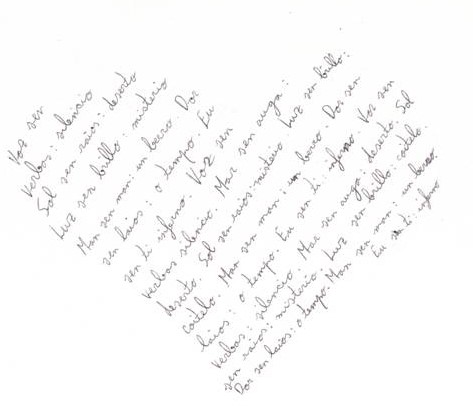 Voz sen
verbas: silencio
Sol sen raios: deserto
Luz sen brillo: misterio
Man sen man: un berro. Dor
sen laios: o tempo. Eu
sen ti inferno. Voz sen
verbas silencio. Mar sen auga:
deserto. Sol sen raios: misterio Luz sen brillo:
coitelo. Man sen man: un berro. Dor sen
laios: o tempo. Eu sen ti: inferno. Voz sen
verbas: silencio. Mar sen auga: deserto. Sol
sen raios: misterio. Luz sen brillo: coitelo.
Dor sen laios: o tempo. Man sen man: un berro.
Eu sen ti: inferno